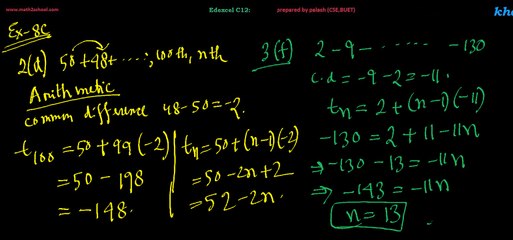 www.math2school.com
Edexcel C12:
prepared by palash (CSE,BUET)
Ex-8C
2(d) 50+48+ .....; 100th, nth
Arithmetic
common difference 48-50=-2.
t100 = 50+99(-2)
= 50 - 198
= -148.
tn = 50+(n-1)(-2)
= 50-2n+2
= 52-2n.
3(f) 2 - 9 - ...... -130
c.d = -9-2 = -11.
tn = 2+(n-1)(-11)
-130 = 2+11-11n
⇒ -130-13 = -11n
⇒ -143 = -11n
n = 13